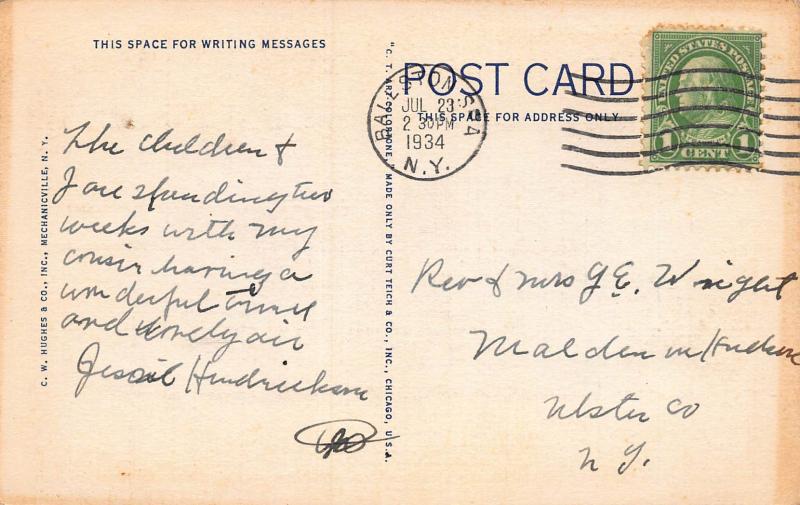 THIS SPACE FOR WRITING MESSAGES
The children &
I are spending two
weeks with my
cousin having a
wonderful time
and lovely air
Jessie Hendrickson
C. W. HUGHES & CO., INC., MECHANICVILLE, N. Y.
"C. T. ART-COLORTONE," MADE ONLY BY CURT TEICH & CO., INC., CHICAGO, U.S.A.
POST CARD
THIS SPACE FOR ADDRESS ONLY
BALLSTON SPA
JUL 23
2 30 PM
1934
N.Y.
UNITED STATES POSTAGE
1 CENT 1
Rev & Mrs G E. Wright
Malden on Hudson
Ulster Co
N Y.